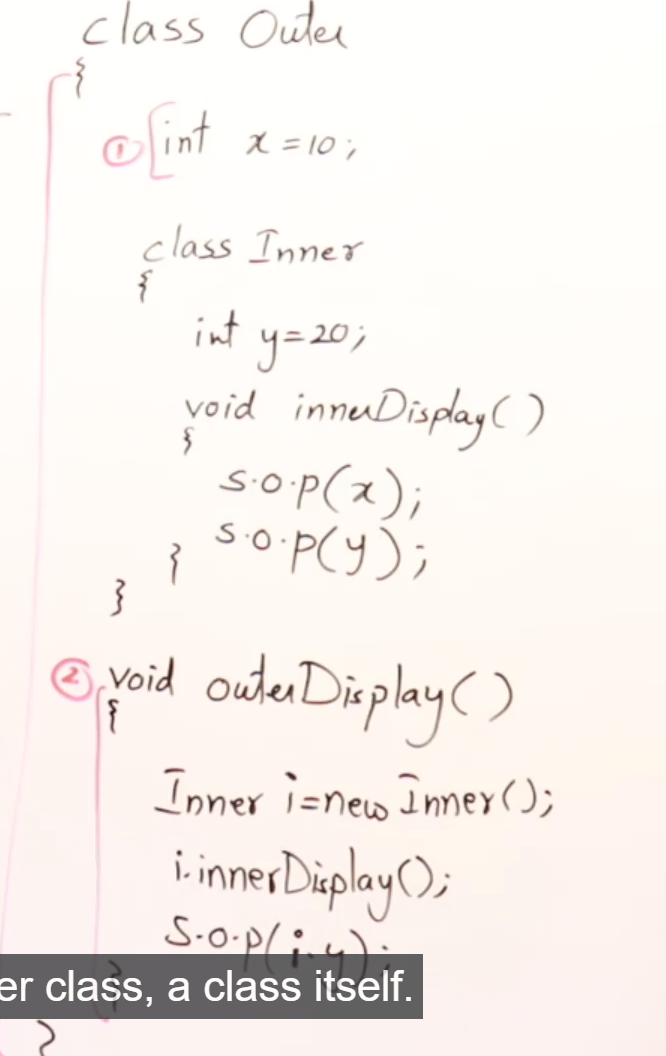 class Outer
{
① int x = 10;
class Inner
{
int y=20;
void innerDisplay()
{
S.O.P(x);
S.O.P(y);
}
}
② void outerDisplay()
{
Inner i=new Inner();
i.innerDisplay();
S.O.P(i.y);
}
er class, a class itself.
}